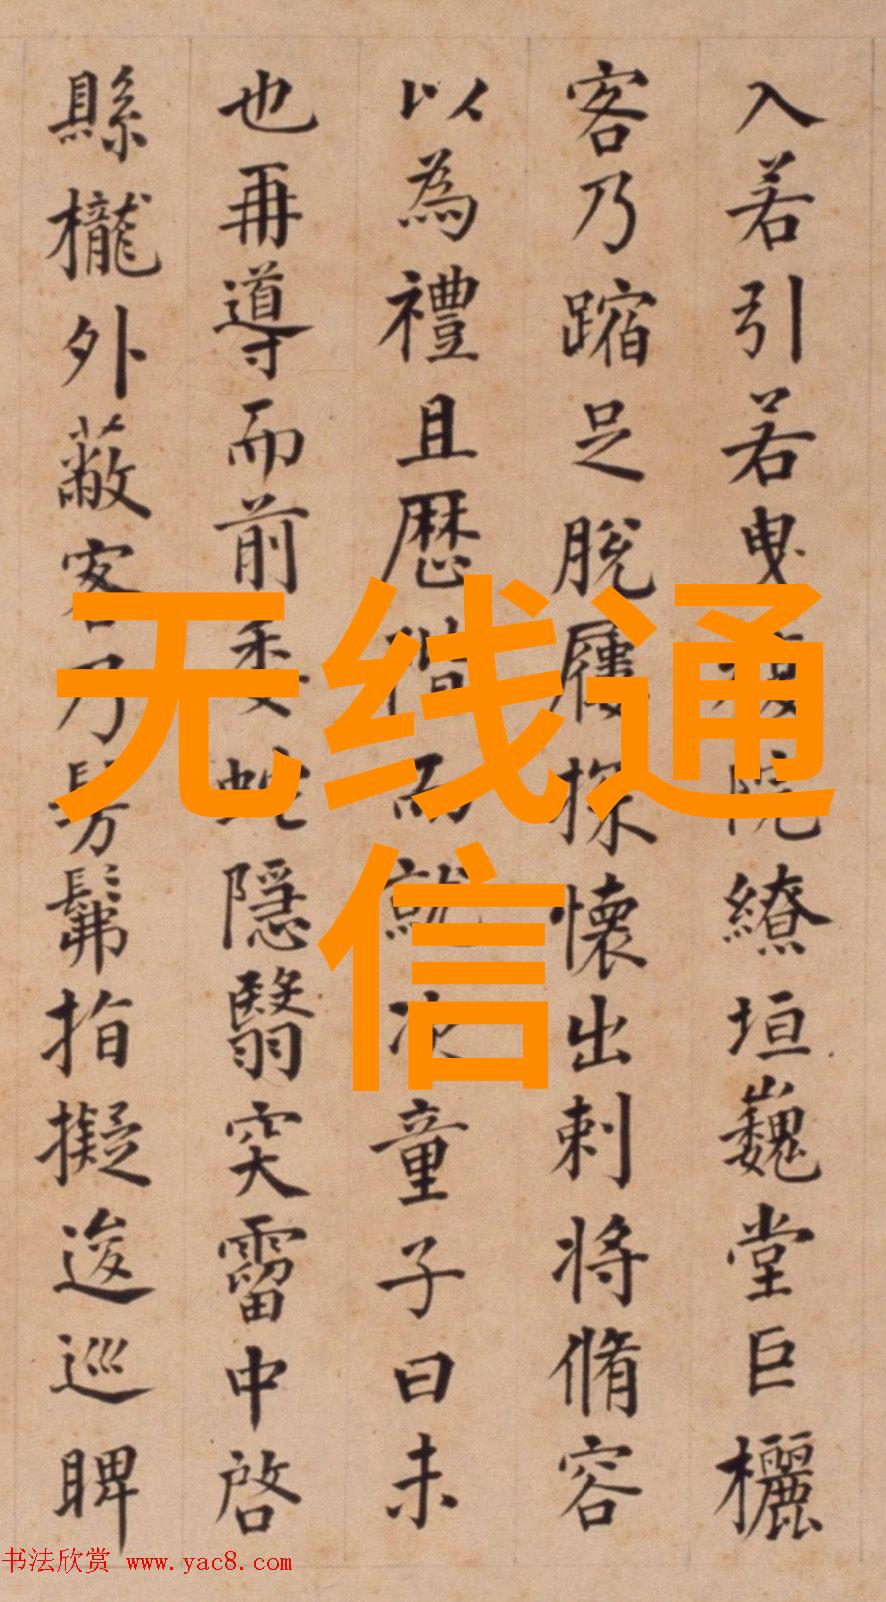 入若引若曳院繚垣巍堂巨欐
客乃蹜足脫屨探懷出刺將脩容
以為禮且歷階而就次童子曰未
也再導而前委蛇隱翳突霤中啓
縣櫳外蔽客乃髣髴指擬逡巡睥
无线通
信
书法欣赏 www.yac8.com